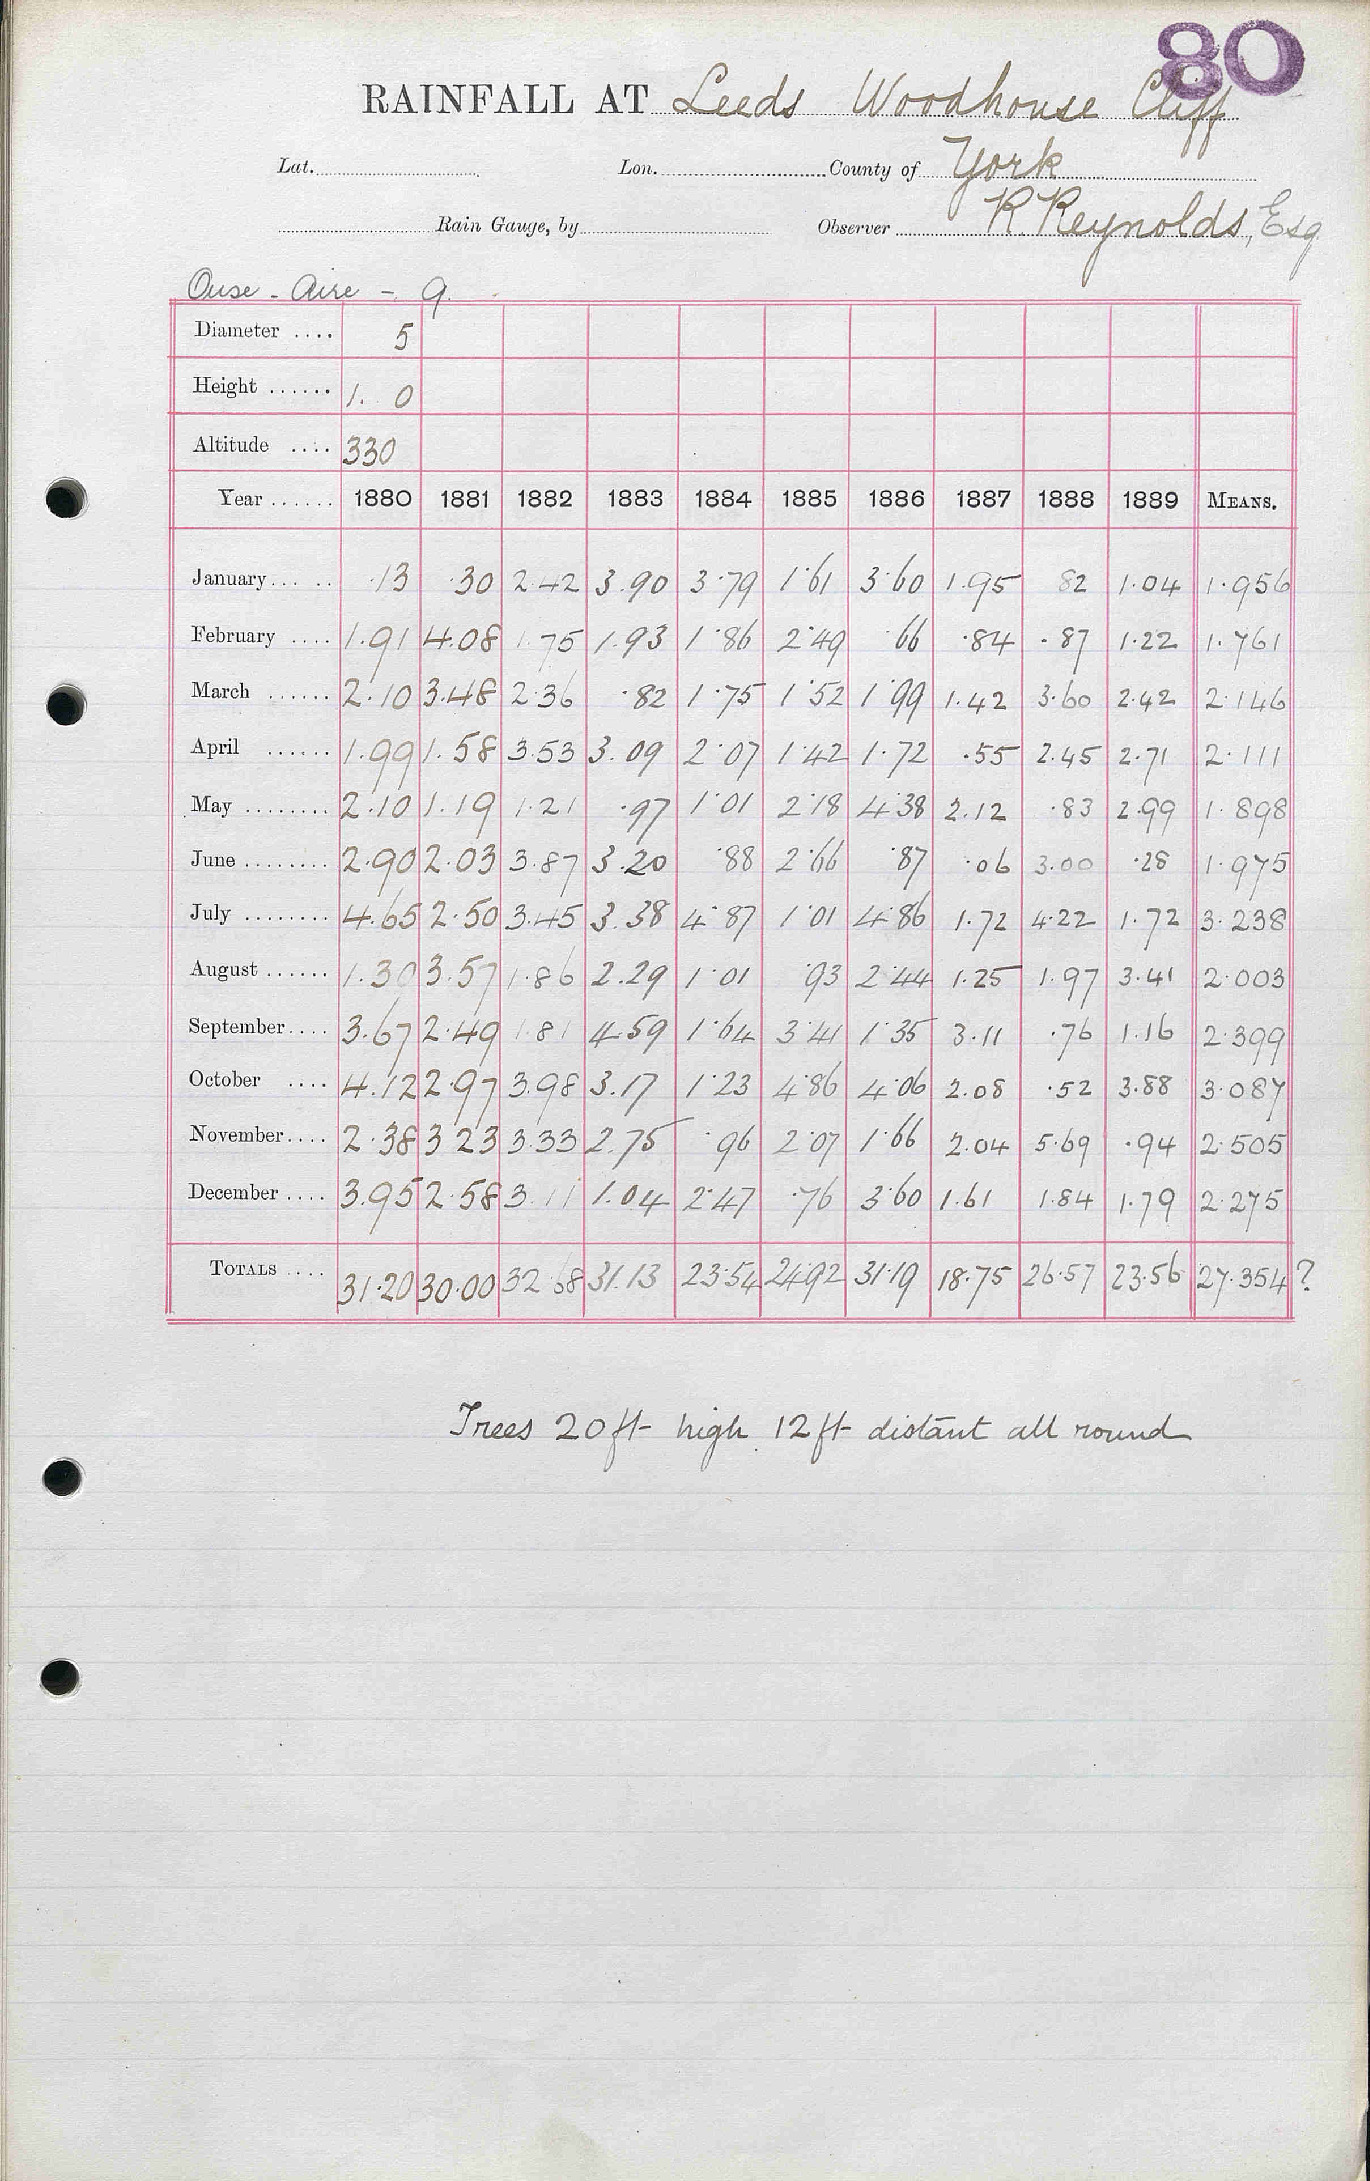 80
RAINFALL AT Leeds Woodhouse Cliff
Lat. Lon. County of York
Rain Gauge, by Observer R Reynolds, Esq
Ouse - Aire - 9.
Diameter .... 5
Height ...... 1. 0
Altitude .... 330
Year ...... 1880 1881 1882 1883 1884 1885 1886 1887 1888 1889 MEANS.
January ... .13 .30 2.42 3.90 3.79 1.61 3.60 1.95 82 1.04 1.956
February .... 1.91 4.08 1.75 1.93 1.86 2.49 .66 .84 .87 1.22 1.761
March ...... 2.10 3.48 2.36 .82 1.75 1.52 1.99 1.42 3.60 2.42 2.146
April ...... 1.99 1.58 3.53 3.09 2.07 1.42 1.72 .55 2.45 2.71 2.111
May ........ 2.10 1.19 1.21 .97 1.01 2.18 4.38 2.12 .83 2.99 1.898
June ........ 2.90 2.03 3.87 3.20 .88 2.66 .87 .06 3.00 .28 1.975
July ........ 4.65 2.50 3.45 3.38 4.87 1.01 4.86 1.72 4.22 1.72 3.238
August ...... 1.30 3.57 1.86 2.29 1.01 .93 2.44 1.25 1.97 3.41 2.003
September .... 3.67 2.49 1.81 4.59 1.64 3.41 1.35 3.11 .76 1.16 2.399
October .... 4.12 2.97 3.98 3.17 1.23 4.86 4.06 2.08 .52 3.88 3.087
November .... 2.38 3 23 3.33 2.75 .96 2.07 1.66 2.04 5.69 .94 2.505
December .... 3.95 2.58 3.11 1.04 2.47 .76 3.60 1.61 1.84 1.79 2.275
TOTALS .... 31.20 30.00 32.68 31.13 23.54 24.92 31.19 18.75 26.57 23.56 27.354 ?
Trees 20ft high 12ft distant all round